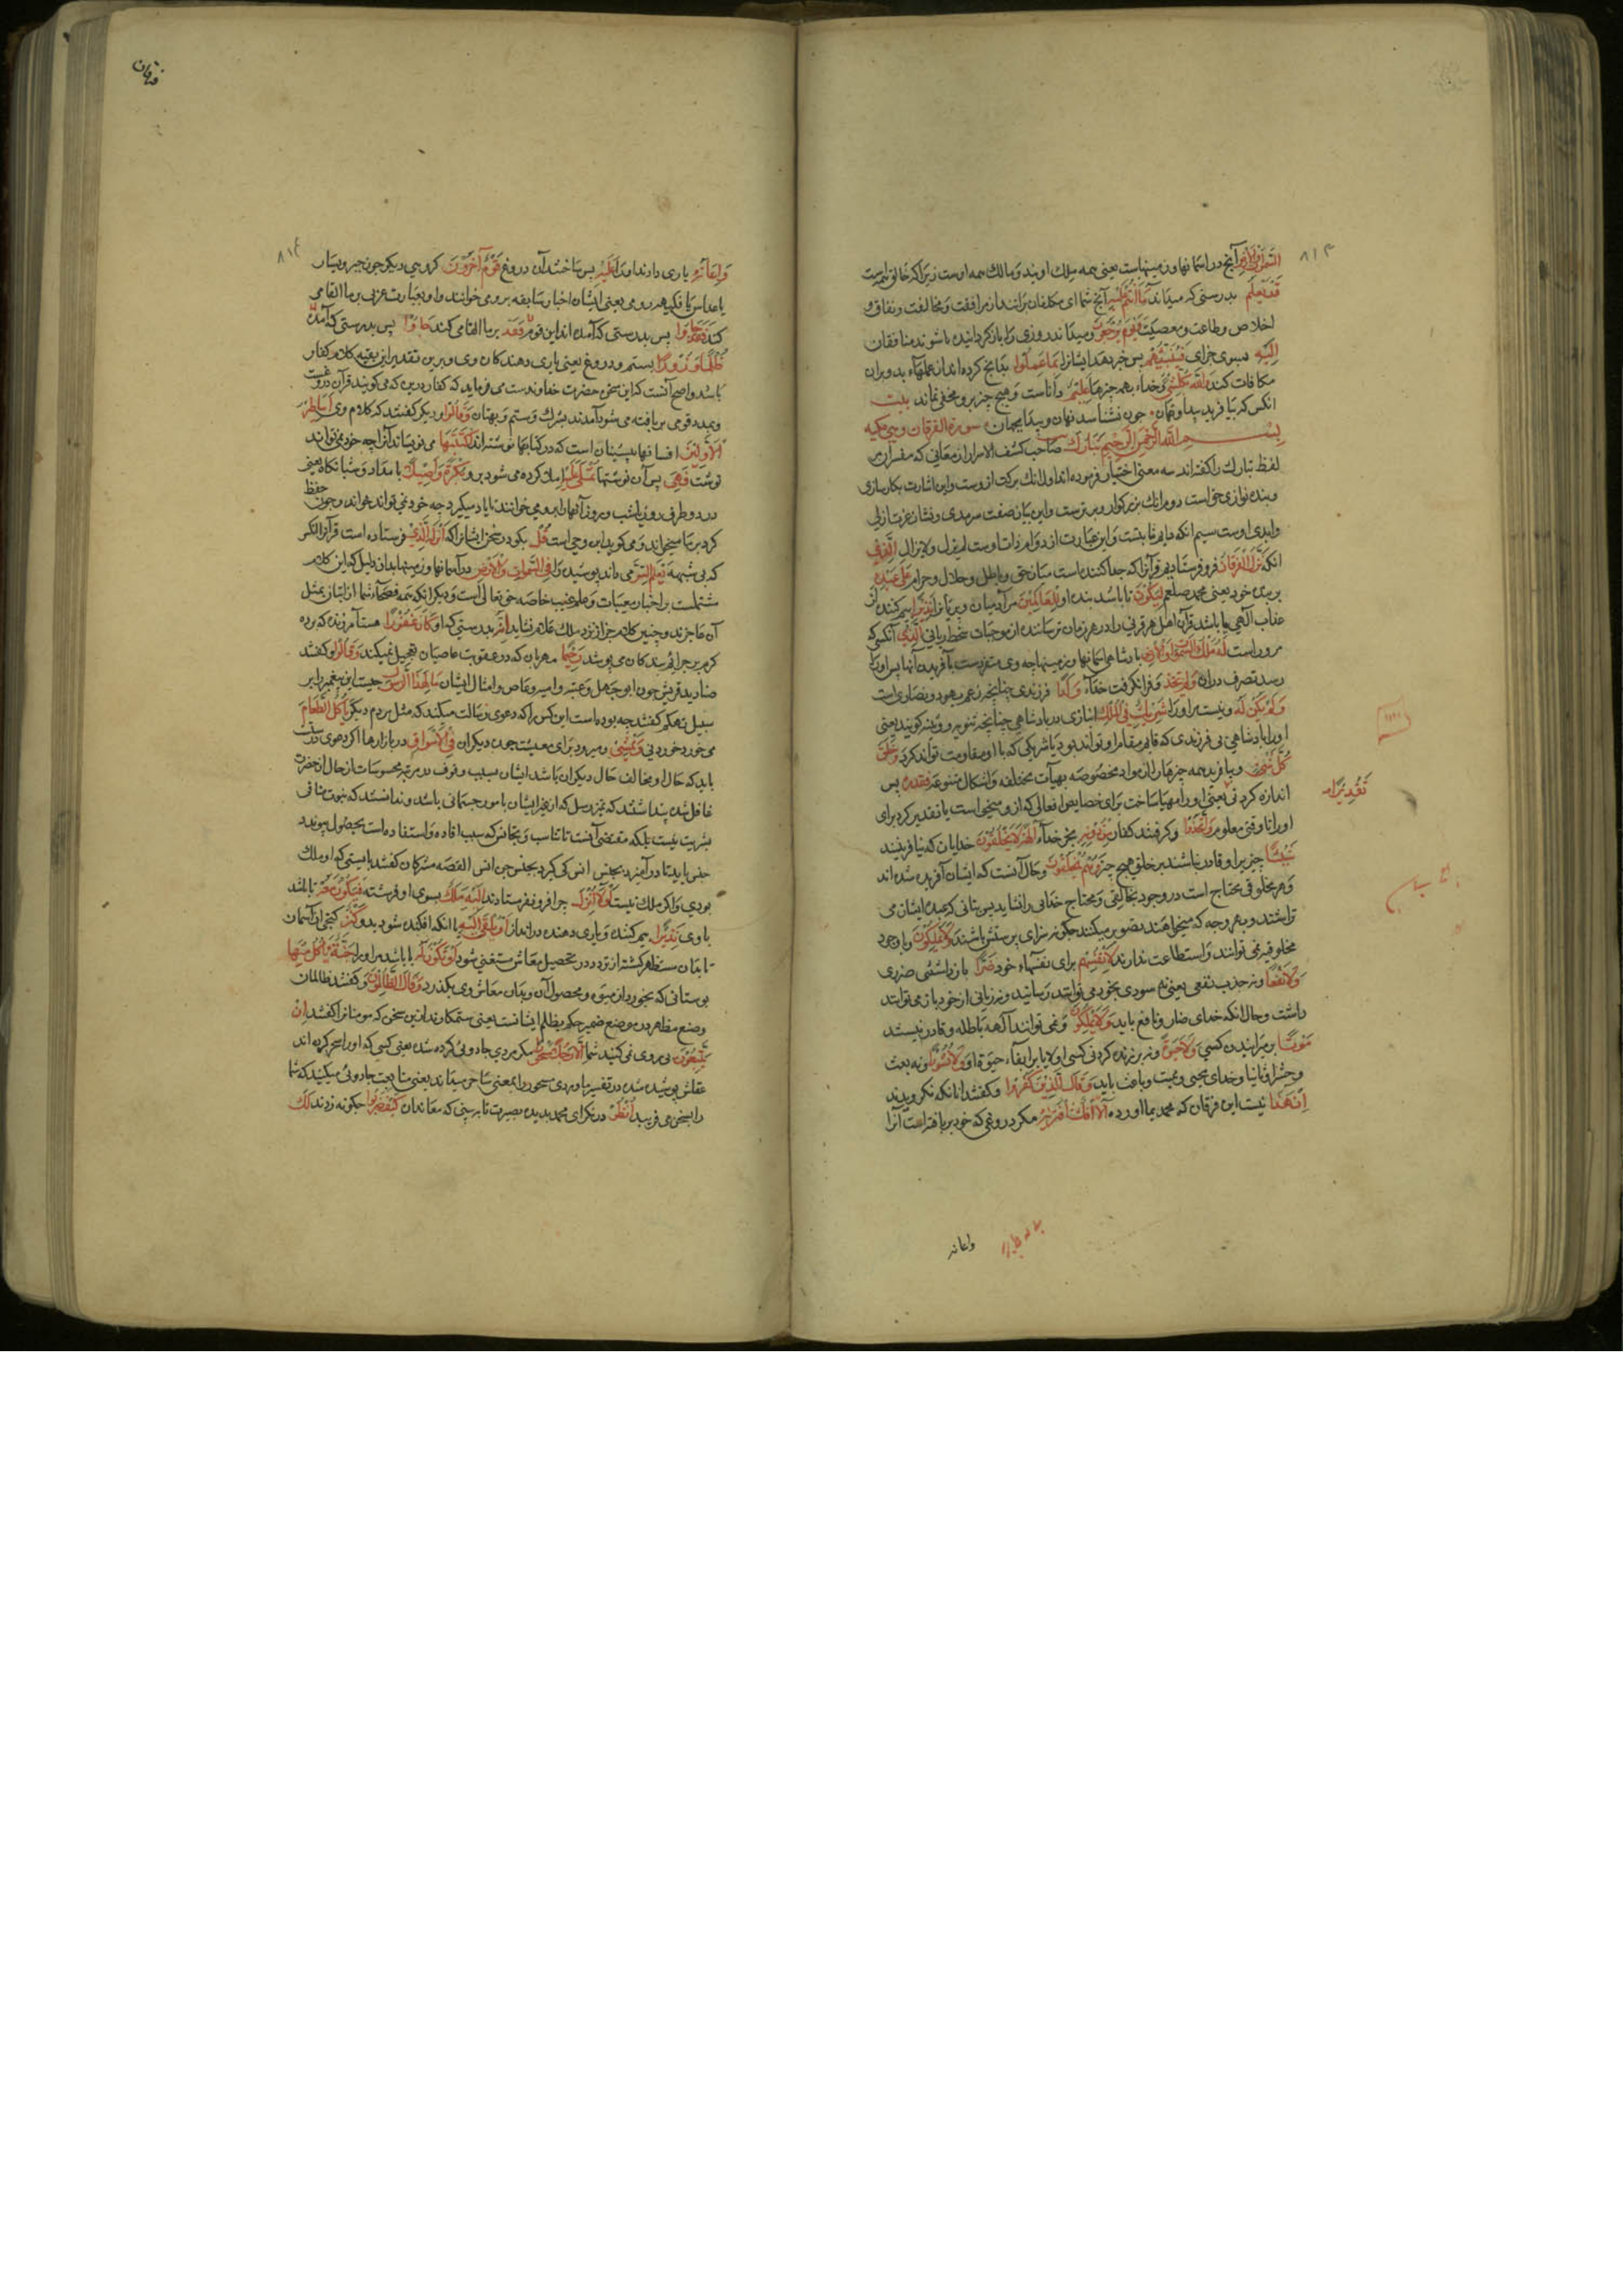 السموات والارض آنچه در اسمانها و زمینهاست یعنی همه ملک اویند و مالک همه اوست زیرا که خالق همه اوست
قد یعلم بدرستی که میداند ما انتم علیه آنچ شما ای مکلفان برانید از موافقت و مخالفت و نفاق و
اخلاص و طاعت و معصیت و یوم یرجعون و میداند روزی را که بازگردانیده باشوند منافقان
الیه بسوی جزای فینبئهم پس خبر دهد ایشانرا بما عملوا بدانچ کرده اند از عملهاء بد و بران
مکافات کند والله بکل شیء و خداء بهمه چیزها علیم داناست و هیچ چیز برو مخفی نماند بیت
انکس که بیافرید پیدا و نهان چون نشناسد نهان و پیدا بجهان سورة الفرقان وهی مکیه
بسم الله الرحمن الرحیم تبارک صاحب کشف الاسرار از معانی که مفسران
لفظ تبارک را گفته اند سه معنی اختیار فرموده اند اول انک برکت ازوست و این اشارت بکارسازی
و بنده نوازی خواست دوم انک بزرکوار و برترست و این بیان صفت سرمدی و نشان عزت ازلی
وابدی اوست سیم انکه دایم ثابتست و این عبارت از دوام ذات اوست لم یزل و لا یزال الذی
انکه نزل الفرقان فرو فرستاد بر قرآنرا که جدا کننده است میان حق و باطل و حلال و حرام علی عبده
بر بنده خود یعنی محمد صلعم لیکون تا باشد بنده او للعالمین مر آدمیان و پریانرا نذیرا بیم کننده از
عذاب الهی یا باشد قرآن اهل هر قرنی را در هر زمان ترساننده از موجبات سخط ربانی الذی آنکسی که
مروراست له ملک السموات والارض پادشاهی اسمانها و زمینها چه وی متفردست بآفریدن آنها پس او را
رسد تصرف دران ولم یتخذ و فرا نکرفت خداء ولدا فرزندی چنانچه زعم یهود و نصاری است
ولم یکن له و نیست مر او را شریک فی الملک انبازی در پادشاهی چنانچه ثنویه و وثنیه کویند یعنی
او را پادشاهی بی فرزندی که قایم مقام او تواند بود یا شریکی که با او مقاومت تواند کرد وخلق
کل شیء و بیافرید همه چیزها را از مواد مخصوصه بهیآت مختلفه و اشکال متنوعه فقدره پس
اندازه کرد تقدیرا
انی یعنی او را مهیا ساخت برای خصایص و افعالی که ازو میخواست یا تقدیر کرد برای
او را تا وقتی معلوم واتخذوا و کرفتند کفار من دونه بجز خداء آلهة لا یخلقون خدایان که نیافرینند
شیئا چیزیرا و قادر نباشند بر خلق هیچ چیز وهم یخلقون و حال آنست که ایشان آفریده شده اند
و هر مخلوقی محتاج است در وجود بخالقی و محتاج خدایی را نشاید پس بتانی که عبده ایشان می
تراشند و بهر وجه که میخواهند تصویر میکنند چکونه سزای پرستش باشند ولا یملکون و با وجود
مخلوقیه نمی توانند و استطاعت ندارند لانفسهم برای نفسهاء خود ضرا بازداشتنی ضرری
ولا نفعا و نه جذب نفعی یعنی نه سودی بخود می توانند رسانید و نه زیانی از خود باز می توانند
داشت و حال انکه خدای ضار و نافع باید ولا یملکون و نمی توانند آلهه باطله و قادر نیستند
موتا بر میرانیدن کسی ولا حیوة و نه بر زنده کردنی کسی اولا یا بر ابقاء حیوة او ولا نشورا و نه بعث
و حشر او ثانیا و خدای محیی و ممیت و باعث باید وقال الذین کفروا و گفتند انانکه نکرویدند
ان هذا نیست این فرقان که محمد بما اورده الا افک افتریه مکر دروغی که خود بر بافته است آنرا
واعانه
فرقان
واعانه و یاری دادند او را علیه بس ساختند آن دروغ قوم آخرون کروهی دیکر چون جبر و یسار
یا عداس یا فکیهه رومی یعنی ایشان اخبار سابقه برو می خوانند و او بعبارت عربی بر ما القا می
کند فقد جاؤا پس بدرستی که آمده اند این قوم
ظلما وزورا بستم و دروغ یعنی یاری دهندکان وی و برین تقدیر این بقیه کلام کفار
باشد و اصح آنست که این سخن حضرت خداوندست می فرماید که کفار درین که می کویند قرآن دروغست
و بمدد قومی بر بافته می شود آمدند بشرک و ستم و بهتان وقالوا و دیکر کفتند که کلام وی اساطیر
الاولین افسانهای پیشینیان است که در کتابها نوشته اند اکتتبها می نویساند آنرا چه خود نمی تواند
نوشت فهی پس آن نوشتها تملی علیه املا کرده می شود برو بکرة واصیلا بامداد و شبانکاه یعنی
در دو طرف روز یا شب و روز آنها را برو می خوانند تا یاد میکیرد چه خود نمی تواند خواند و چون حفظ
کرد بر ما میخواند و می کوید این وحی است قل بکو در سخن ایشانرا که انزله الذی فرستاده است قرآنرا انکس
که بی شبهه یعلم السر می داند پوشیده را فی السموات والارض در آسمانها و زمینها بدان دلیل که این کلام
مشتملست بر اخبار مغیبات و علم غیب خاصه حق تعالی است و دیکر انکه همه فصحاء شما از اتیان بمثل
آن عاجزند و چنین کلام جز از نزد ملک علام نشاید انه بدرستی که او کان غفورا هست آمرزنده که پرده
کرم بر جرایم بندکان می پوشد رحیما مهربان که در عقوبت عاصیان تعجیل نمیکند وقالوا و کفتند
صنادید قریش چون ابو جهل و عتبه و امیه و عاص و امثال ایشان مال هذا الرسول چیست این پیغمبر را بر
سبیل تهکم کفتند چه بوده است این کس را که دعوی رسالت میکند که مثل مردم دیکر یاکل الطعام
می خورد خوردنی ویمشی و میرود برای معیشت چون دیکران فی الاسواق در بازارها اکر دعوی او راست
باید که حال او مخالف حال دیکران باشد ایشان بسبب وقوف در مرتبه محسوسات از حال انحضرت
غافل شده پنداشتند که تمیز رسل که از غیر ایشان بامور جسمانی باشد و ندانستند که نبوت منافی
بشریت نیست بلکه مقتضی آنست تا تناسب و تجانس که سبب افاده و استفاده است بحصول پیوندد
جنس باید تا درآمیزد بجنس انس کی کیرد بجنس جن انس القصه مشرکان کفتند بایستی که او ملک
بودی و اکر ملک نیست لولا انزل چرا فرو نفرستادند الیه ملک بسوی او فرشته فیکون معه تا باشد
با وی نذیرا بیم کننده و یاری دهنده در انذار او یلقی الیه یا انکه افکنده شود بدو کنز کنجی از آسمان
تا بدان مستظهر کشته از تردد در تحصیل معاش مستغنی شود او تکون له یا باشد مر او را جنة یاکل منها
بوستانی که بخورد از میوه و محصول آن و بدان معاش وی بکذرد وقال الظالمون و کفتند ظالمان
وضع مظهر در موضع ضمیر حکم بظلم ایشانست یعنی ستمکارند ازین سخن که مومنانرا کفتند ان
تتبعون پی روی نمی کنید شما الا رجلا مسحورا مکر مردی جادویی کرده شده یعنی کسی که او را سحر کرده اند
عقلش پوشیده شده در تفسیر ماوردی مسحور را بمعنی ساحر میداند یعنی متابعت جادوئی میکنید که شما
را بسخن می فریبد انظر درنکر ای محمد بدیده بصیرت تا ببینی که معاندان کیف ضربوا چکونه زدند لک